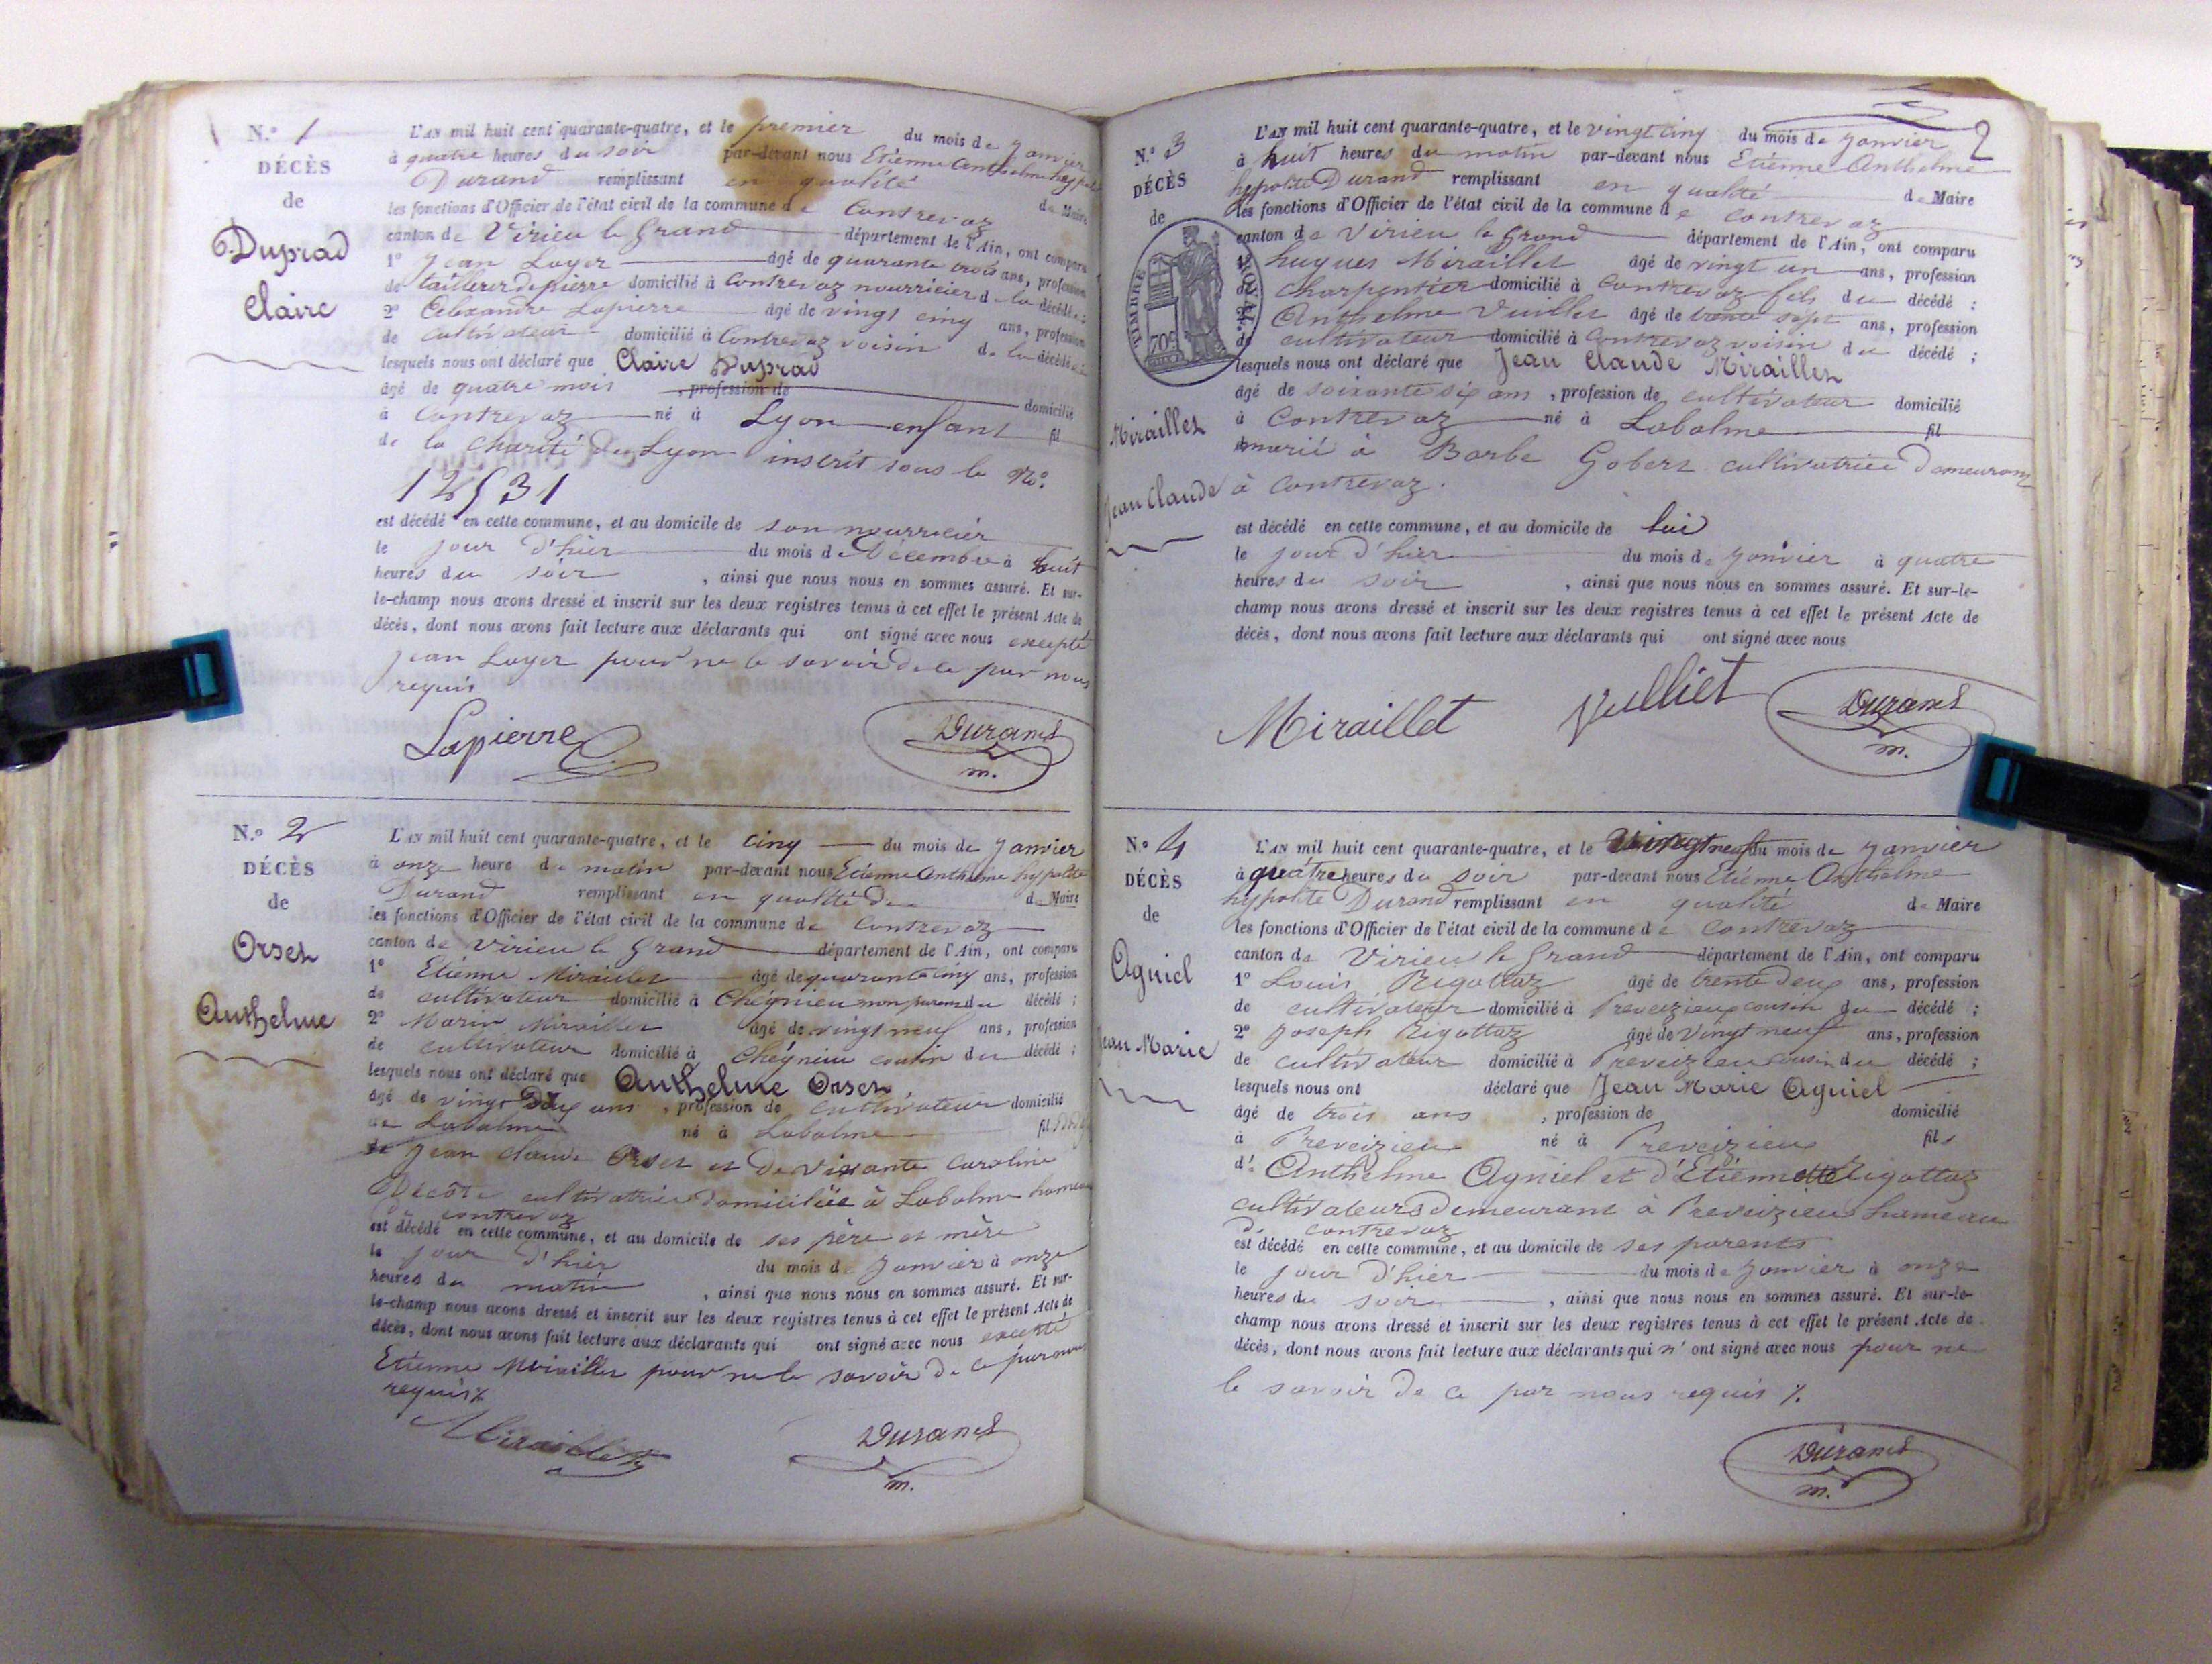 N.° 1
DÉCÈS
de
Duprad
Claire
L'AN mil huit cent quarante-quatre, et le premier du mois de Janvier
à quatre heures du soir par-devant nous Etienne Anthelme hyppolite
Durand remplissant en qualité de Maire
les fonctions d'Officier de l'état civil de la commune de Contrevoz
canton de Virieu le Grand département de l'Ain, ont comparu
1° Jean Loyer âgé de quarante trois ans, profession
de tailleur de pierre domicilié à Contrevoz nourricier de la décédée ;
2° Alexandre Lapierre âgé de vingt cinq ans, profession
de cultivateur domicilié à Contrevoz voisin de la décédée ;
lesquels nous ont déclaré que Claire Duprad
âgé de quatre mois , profession de domicilié
à Contrevoz né à Lyon enfant fil
de la Charité de Lyon inscrit sous le N°.
12531
est décédé en cette commune, et au domicile de son nourricier
le jour d'hier du mois de Décembre à huit
heures du soir , ainsi que nous nous en sommes assuré. Et sur-
le-champ nous avons dressé et inscrit sur les deux registres tenus à cet effet le présent Acte de
décès, dont nous avons fait lecture aux déclarants qui ont signé avec nous excepté
Jean Loyer pour ne le savoir de ce par nous
requis
Lapierre Durand
m.
N.° 2
DÉCÈS
de
Orset
Anthelme
L'AN mil huit cent quarante-quatre, et le cinq du mois de Janvier
à onze heure de matin par-devant nous Etienne Anthelme hypolite
Durand remplissant en qualité de de Maire
les fonctions d'Officier de l'état civil de la commune de Contrevoz
canton de Virieu le Grand département de l'Ain, ont comparu
1° Etienne Miraillet âgé de quarante cinq ans, profession
de cultivateur domicilié à Chégnieu non parent du décédé ;
2° Marin Miraillet âgé de vingt neuf ans, profession
de cultivateur domicilié à Chégnieu cousin du décédé ;
lesquels nous ont déclaré que Anthelme Orset
âgé de vingt deux ans , profession de cultivateur domicilié
à Labalme né à Labalme fil
de Jean Claude Orset et de Caroline
cultivatrice domiciliée à Labalme hameau
contrevoz
est décédé en cette commune, et au domicile de ses père et mère
le jour d'hier du mois de Janvier à onze
heures du matin , ainsi que nous nous en sommes assuré. Et sur-
le-champ nous avons dressé et inscrit sur les deux registres tenus à cet effet le présent Acte de
décès, dont nous avons fait lecture aux déclarants qui ont signé avec nous excepté
Etienne Miraillet pour ne le savoir de ce par nous
requis
Miraillet Durand
m.
2
N.° 3
DÉCÈS
de
TIMBRE ROYAL
70c
Miraillet
Jean Claude
L'AN mil huit cent quarante-quatre, et le vingt cinq du mois de Janvier
à huit heures du matin par-devant nous Etienne Anthelme
hypolite Durand remplissant en qualité de Maire
les fonctions d'Officier de l'état civil de la commune de Contrevoz
canton de Virieu le Grand département de l'Ain, ont comparu
hugues Miraillet âgé de vingt un ans, profession
de charpentier domicilié à Contrevoz fils du décédé ;
Anthelme Vuillet âgé de trente sept ans, profession
de cultivateur domicilié à Contrevoz voisin du décédé ;
lesquels nous ont déclaré que Jean Claude Miraillet
âgé de soixante six ans , profession de cultivateur domicilié
à Contrevoz né à Labalme fil
marié à Barbe Gobert cultivatrice demeurant
à Contrevoz.
est décédé en cette commune, et au domicile de lui
le jour d'hier du mois de Janvier à quatre
heures du soir , ainsi que nous nous en sommes assuré. Et sur-le-
champ nous avons dressé et inscrit sur les deux registres tenus à cet effet le présent Acte de
décès, dont nous avons fait lecture aux déclarants qui ont signé avec nous
Miraillet Vulliet Durand
m.
N.° 4
DÉCÈS
de
Agniel
Jean Marie
L'AN mil huit cent quarante-quatre, et le vingt neuf du mois de Janvier
à quatre heures du soir par-devant nous Etienne Anthelme
hyppolite Durand remplissant en qualité de Maire
les fonctions d'Officier de l'état civil de la commune de Contrevoz
canton de Virieu le Grand département de l'Ain, ont comparu
1° Louis Rigottaz âgé de trente deux ans, profession
de cultivateur domicilié à Preveizieu cousin du décédé ;
2° Joseph Rigottaz âgé de vingt neuf ans, profession
de cultivateur domicilié à Preveizieu cousin du décédé ;
lesquels nous ont déclaré que Jean Marie Agniel
âgé de trois ans , profession de domicilié
à Preveizieu né à Preveizieu fils
d'Anthelme Agniel et d'Etiennette Rigottaz
cultivateurs demeurant à Preveizieu hameau
de contrevoz
est décédé en cette commune, et au domicile de ses parents
le jour d'hier du mois de Janvier à onze
heures du soir , ainsi que nous nous en sommes assuré. Et sur-le-
champ nous avons dressé et inscrit sur les deux registres tenus à cet effet le présent Acte de
décès, dont nous avons fait lecture aux déclarants qui n'ont signé avec nous pour ne
le savoir de ce par nous requis
Durand
m.